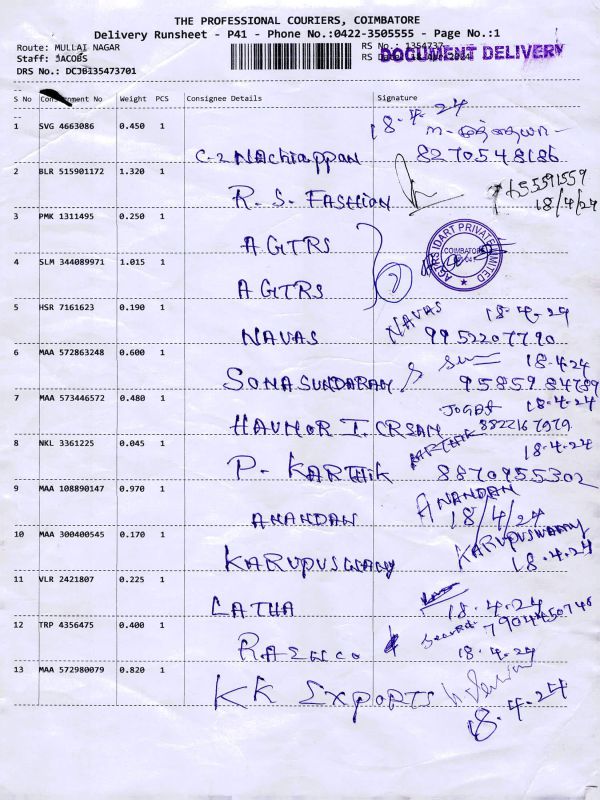 THE PROFESSIONAL COURIERS, COIMBATORE
Delivery Runsheet - P41 - Phone No.:0422-3505555 - Page No.:1
Route: MULLAI NAGAR
RS No.: 1354737
Staff: JACOBS
RS
DOCUMENT DELIVERY
DRS No.: DCJB135473701
S No Consignment No Weight PCS Consignee Details Signature
18-4-24
1 SVG 4663086 0.450 1
Nachiappan 8270548186
2 BLR 515901172 1.320 1
R. S. FASHION
18/4/24
3 PMK 1311495 0.250 1
AGTRS
AGTRS IDART PRIVATE LIMITED
COIMBATORE
4 SLM 344089971 1.015 1
AGTRS
5 HSR 7161623 0.190 1
NAVAS 18-4-24
NAVAS 9952207790
6 MAA 572863248 0.600 1
18.4.24
SONASUNDARAM
7 MAA 573446572 0.480 1
18-4-24
HAVMOR I. CRSAM
8 NKL 3361225 0.045 1
KARTHIK 18-4-24
P. KARTHIK 8870955302
9 MAA 108890147 0.970 1
ANANDAN
18/4/24
ANANDAN
10 MAA 300400545 0.170 1
KARUPUSWAMY
18.4.24
KARUPUSWAMY
11 VLR 2421807 0.225 1
LATHA 18.4.24
12 TRP 4356475 0.400 1
7904450746
18.4.24
13 MAA 572980079 0.820 1
KK Exports
18.4.24